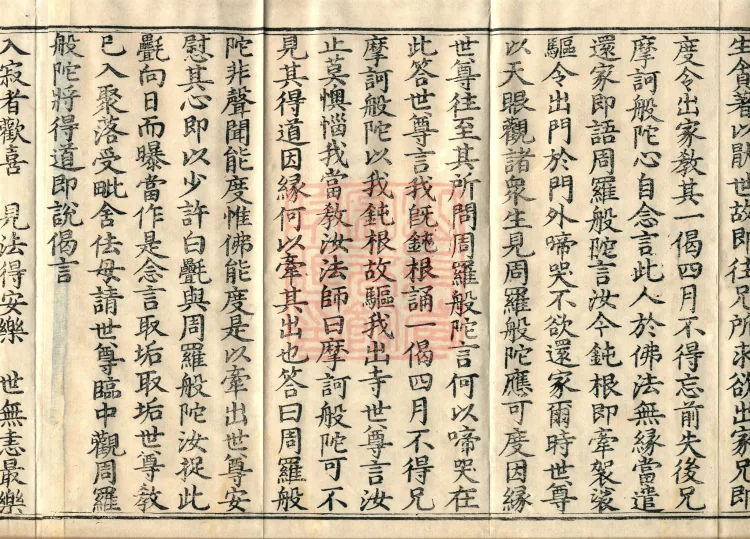 生貪著以骷世故即往兄所求欲出家兄即
度令出家教其一偈四月不得忘前失後兄
摩訶般陀心自念言此人於佛法無緣當遣
還家即語周羅般陀言汝今鈍根即牽袈裟
驅令出門於門外啼哭不欲還家爾時世尊
以天眼觀諸衆生見周羅般陀應可度因緣
世尊往至其所問周羅般陀言何以啼哭在
此答世尊言我既鈍根誦一偈四月不得兄
摩訶般陀以我鈍根故驅我出寺世尊言汝
止莫懊惱我當教汝法師曰摩訶般陀可不
見其得道因緣何以牽其出也答曰周羅般
陀非聲聞能度惟佛能度是以牽出世尊安
慰其心即以少許白㲲與周羅般陀汝捉此
㲲向日而曝當作是念言取垢取垢世尊教
已入聚落受毗舍佉母請世尊臨中觀周羅
般陀將得道即說偈言
入寂者歡喜 見法得安樂 世無恚最樂